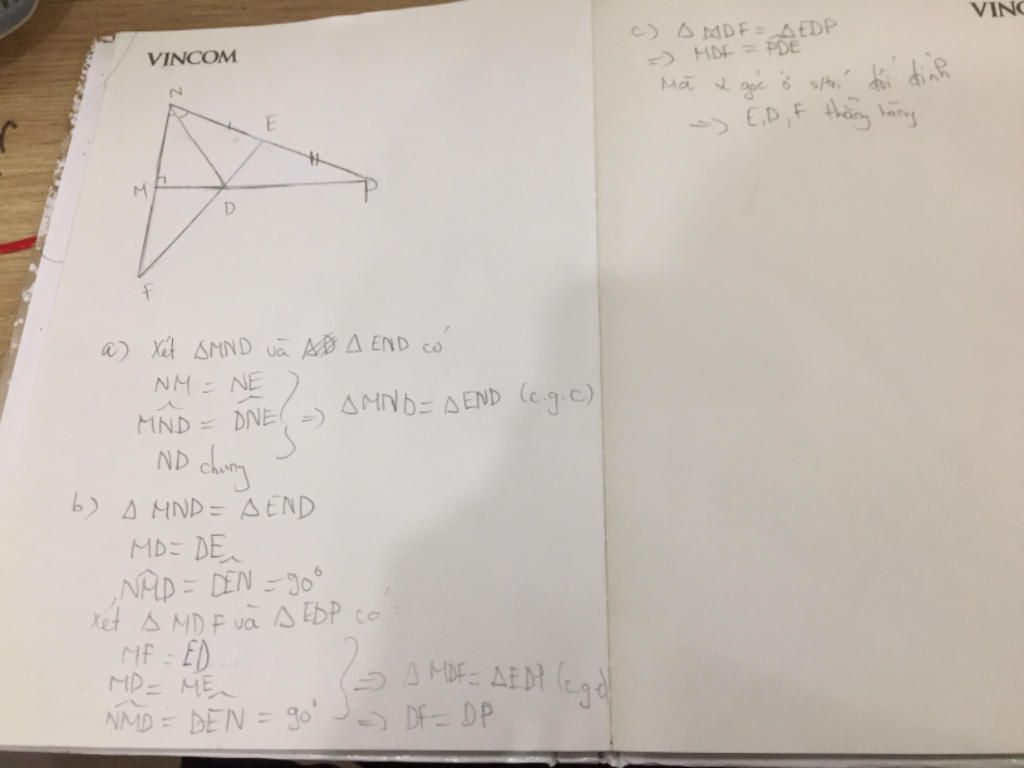 VINCOM
N
E
M
D
P
F
a) Xét ΔMND và ΔEND có
NM = NE
MND̂ = DNÊ } => ΔMND = ΔEND (c.g.c)
ND chung
b) ΔMND = ΔEND
MD = DE
NMD̂ = DEN̂ = 90°
Xét ΔMDF và ΔEDP có:
MF = ED
MD = ME } => ΔMDF = ΔEDP (c.g.c)
NMD̂ = DEN̂ = 90° => DF = DP
VINC
c) ΔMDF = ΔEDP
=> MDF̂ = PDÊ
Mà 2 góc ở vị trí đối đỉnh
=> E, D, F thẳng hàng